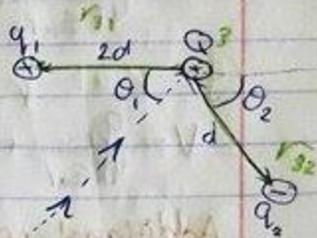 r₃₁
q₁ 2d Q 3
+ +
θ₁ θ₂
d r₃₂
−
q₂